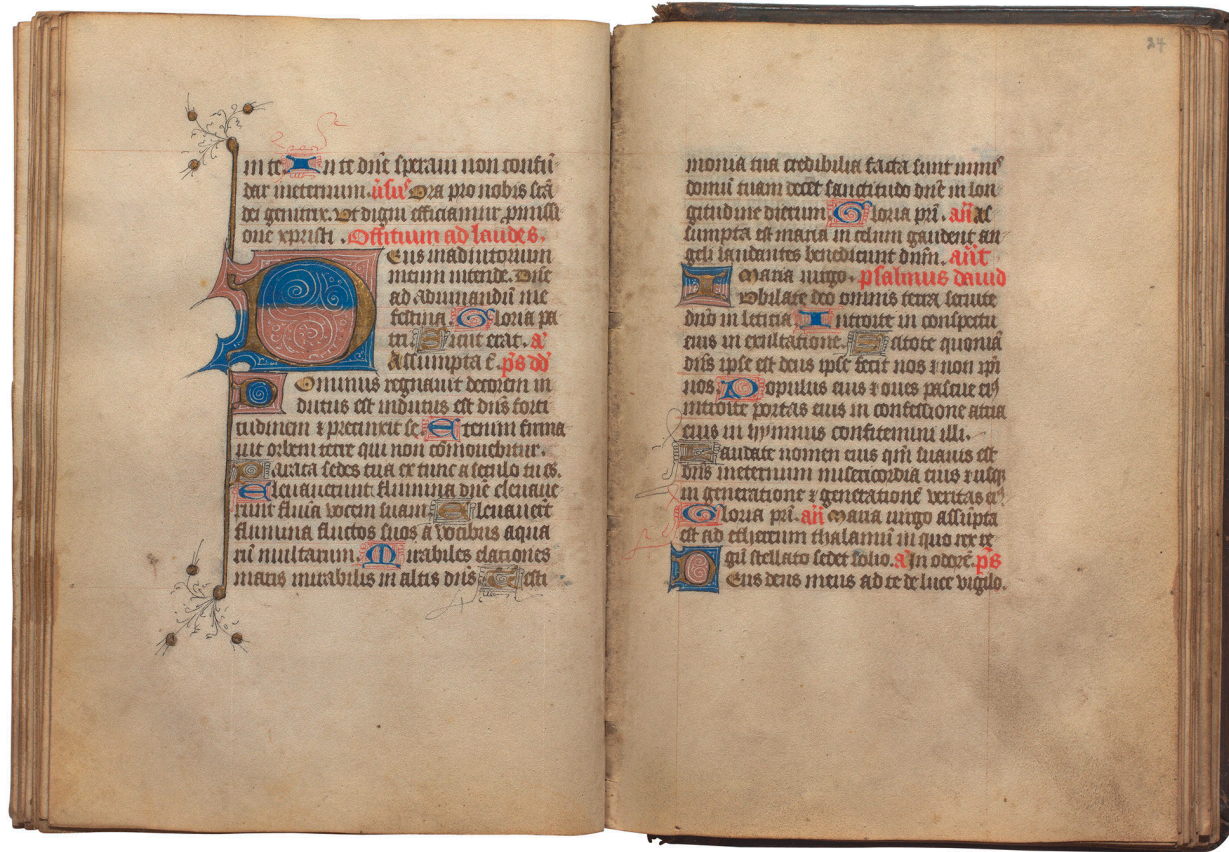 in te. In te dñe speraui non confũ
dar in eternum. ũsus Ora pro nobis scã
dei genitrix. Vt digni efficiamur ꝓmissi
one xpristi. Offitium ad laudes.
Deus in adiutorium
meum intende. Dñe
ad adiuuandũ me
festina. Gloria pa
tri. Sicut erat. añ
Assumpta ẽ. p̃s dd̃
Dominus regnauit decorem in
dutus est indutus est dñs forti
tudinem ⁊ precinxit se. Etenim firma
uit orbem terre qui non cõmouebitur.
Parata sedes tua ex tunc a seculo tu es.
Eleuauerunt flumina dñe eleuaue
runt fluĩa vocem suam Eleuauerũt
flumina fluctos suos a vocibus aqua
rũ multarum. Mirabiles elationes
maris mirabilis in altis dñs Testi
27
monia tua credibilia facta sunt nimis
domũ tuam decet sanctitudo dñe in lon
gitudine dierum Gloria pr̃i. añ As
sumpta est maria in celum gaudent an
geli laudantes benedicunt dñm. añt
Maria uirgo. psalmus dauid
Iubilate deo omnis terra seruite
dño in leticia Introite in conspectu
eius in exultatione. Scitote quoniã
dñs ipse est deus ipse fecit nos ⁊ non ip̃i
nos. Populus eius ⁊ oues pascue eiꝰ
introite portas eius in confessione atria
eius in hymnus confitemini illi.
Laudate nomen eius qm̃ suauis est
dñs in eternum misericordia eius ⁊ usqꝫ
in generatione ⁊ generationẽ veritas eiꝰ
Gloria pr̃i. añ Maria uirgo assũpta
est ad ethereum thalamũ in quo rex re
gũ stellato sedet solio. añ In odorẽ. p̃s
Deus deus meus ad te de luce vigilo.